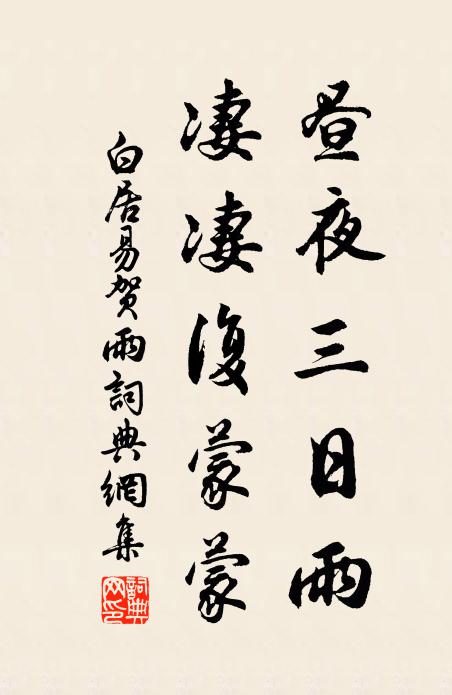 昼夜三日雨
凄凄復蒙蒙
白居易賀雨詞典網集
詞典網印